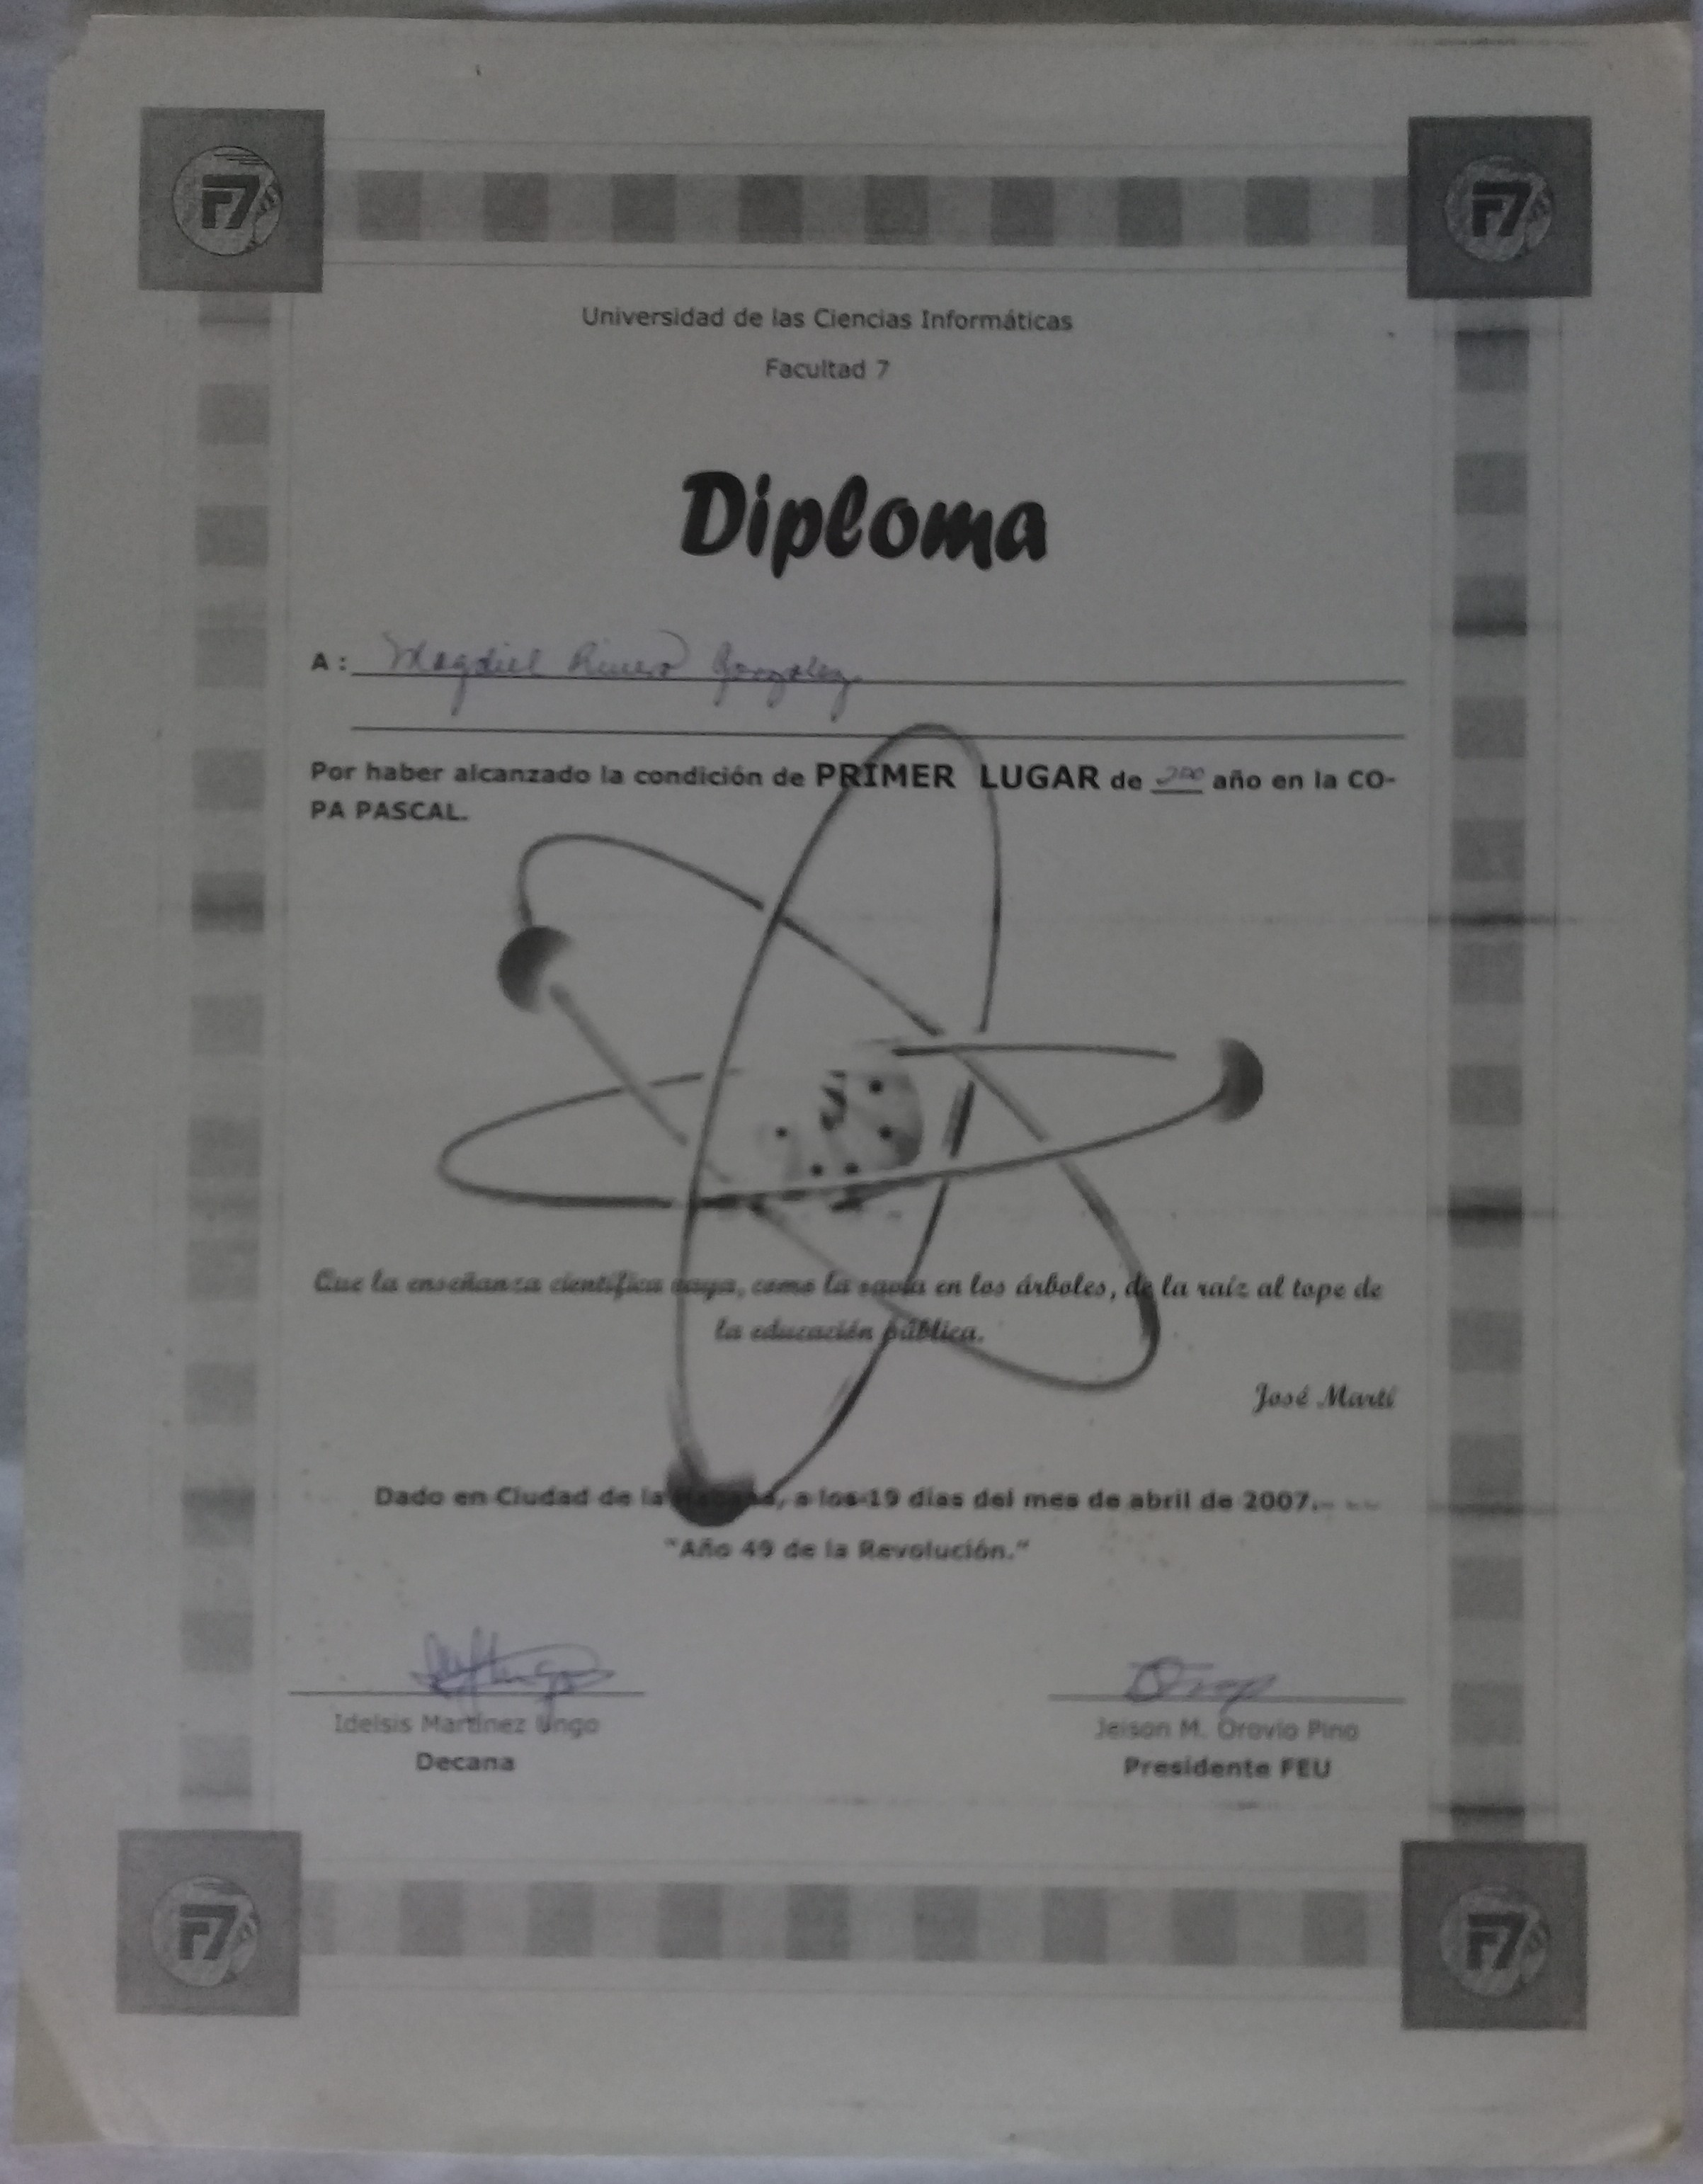 F7
F7
Universidad de las Ciencias Informáticas
Facultad 7
Diploma
A: Magdiel Rivero González
Por haber alcanzado la condición de PRIMER LUGAR de 2do año en la CO-
PA PASCAL.
Que la enseñanza científica vaya, como la savia en los árboles, de la raíz al tope de
la educación pública.
José Martí
Dado en Ciudad de la Habana, a los 19 días del mes de abril de 2007.
"Año 49 de la Revolución."
Idelsis Martínez Ungo
Jeison M. Orovio Pino
Decana
Presidente FEU
F7
F7